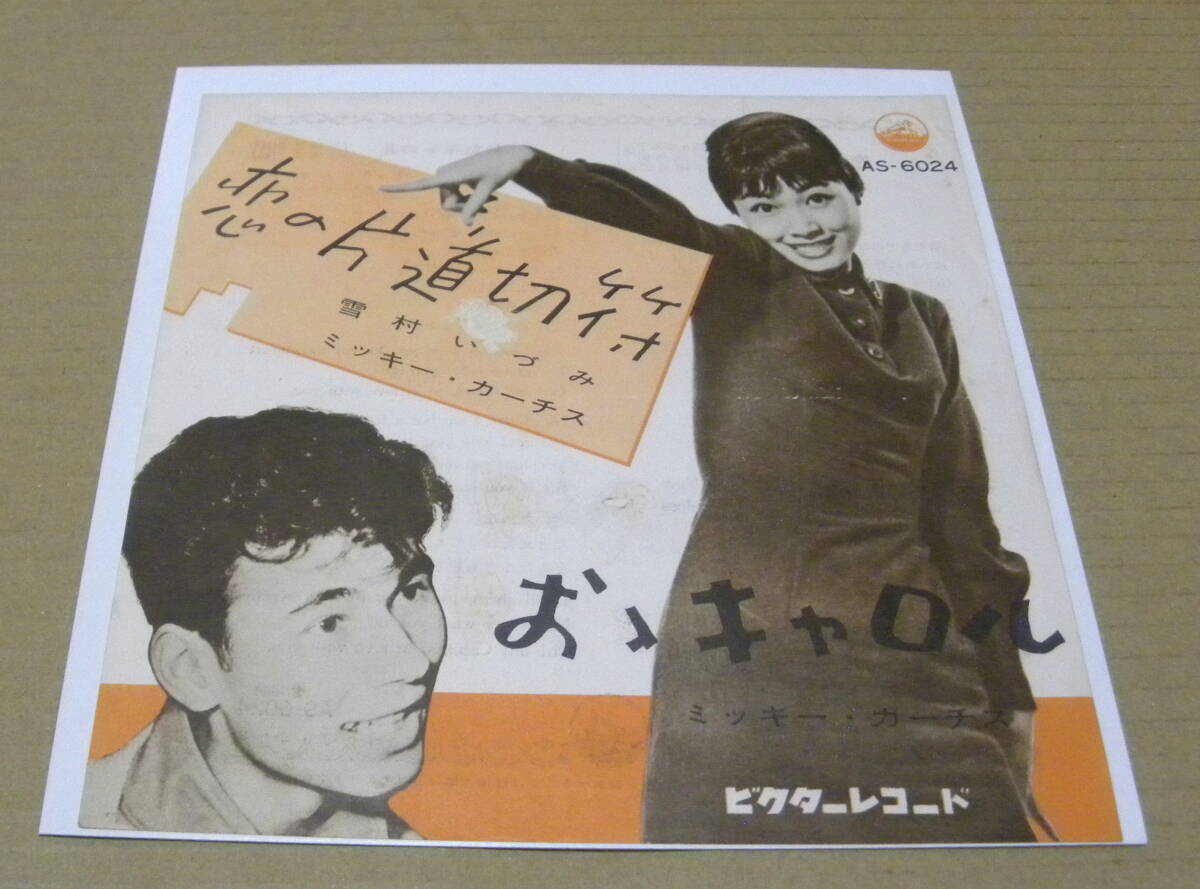 AS-6024
恋の片道切符
雪村いづみ
ミッキー・カーチス
おゝキャロル
ミッキー・カーチス
ビクターレコード